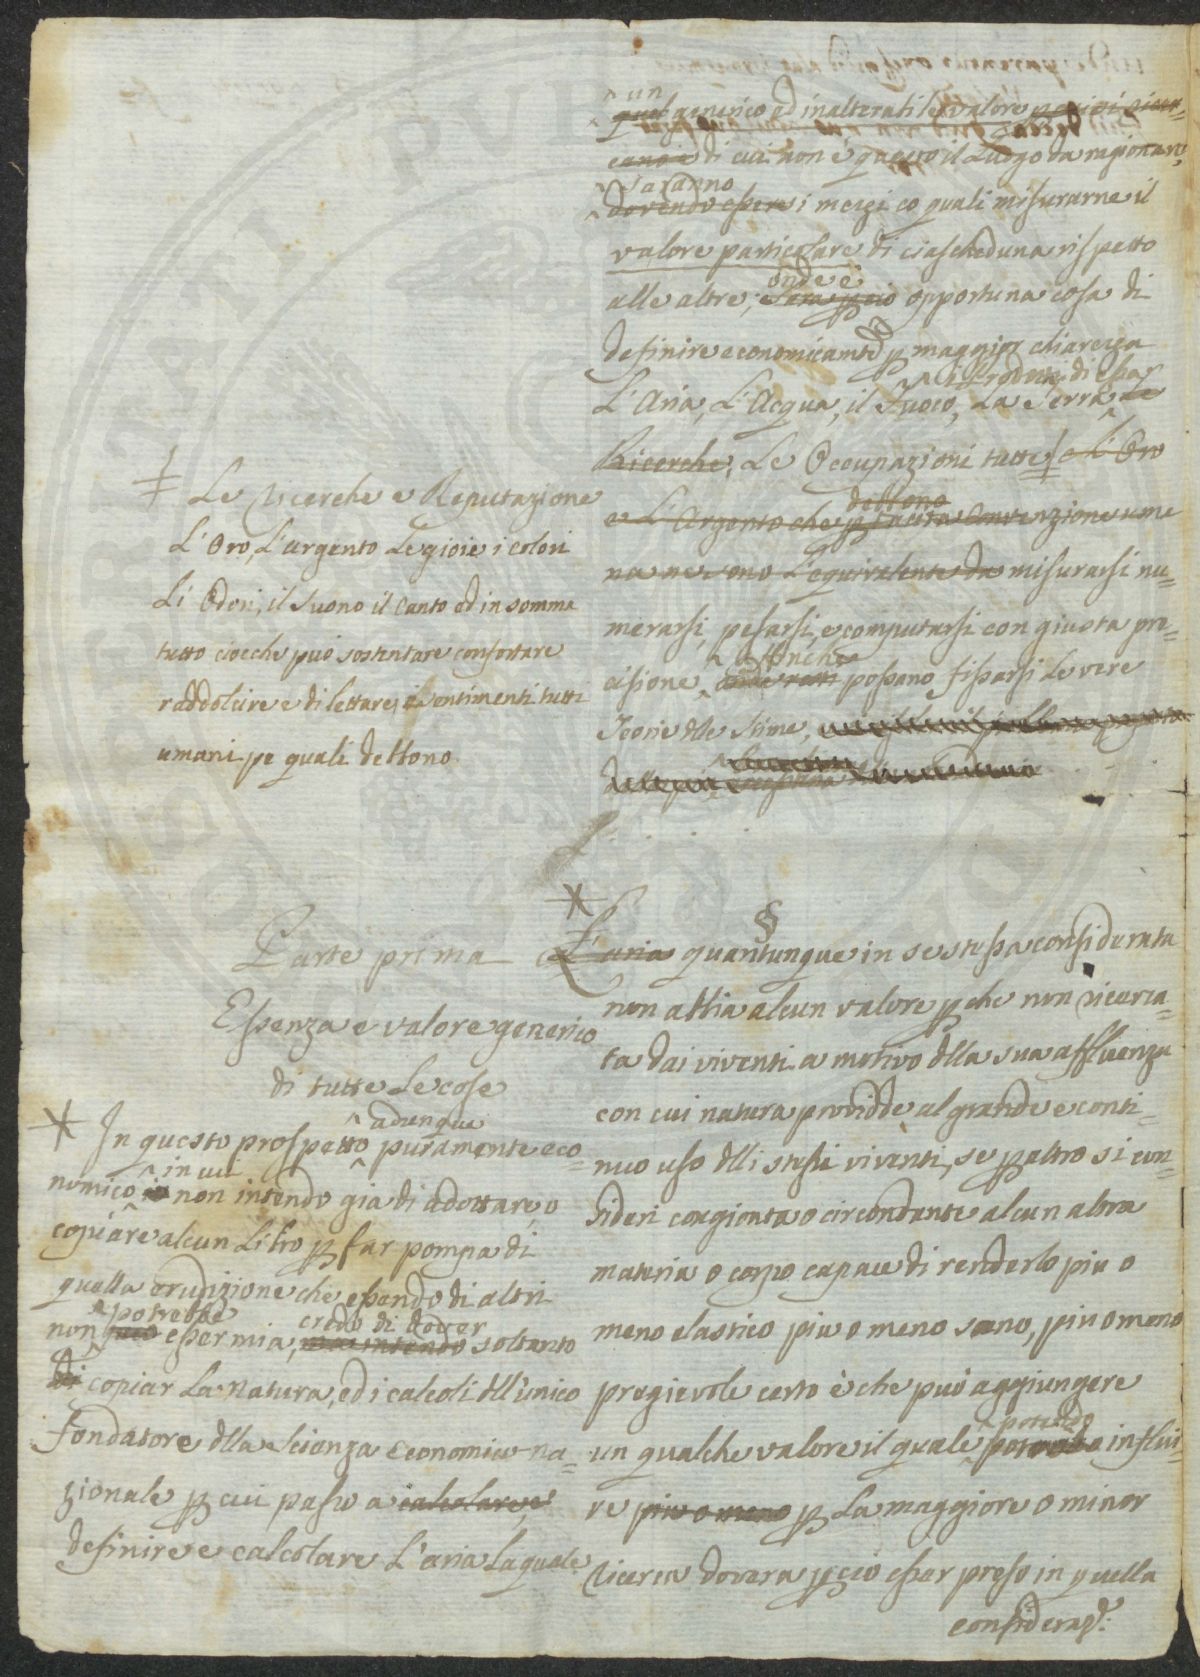 un
quel generico ed inalterabile valore
di cui non è questo il Luogo da ragionare,
saranno
dovendo essere i mezzi co quali misurarne il
valore particolare di ciascheduna rispetto
onde è
alle altre; opportuna cosa di
definire economicamte p maggior chiarezza
i Prodotti di essa
L'Aria, L'Acqua, il Fuoco, La Terra, Le
Ricerche, Le Occupazioni tutte, e L'Oro
debbono
e L'Argento che p tacita Convenzione uma
na ne sono L'equivalente da misurarsi nu=
merarsi, pesarsi, e computarsi con giusta pre=
cisione, possano fissarsi Le vere
Teorie dlle Stime,
Le Ricerche e Reputazione
L'Oro, L'argento Le gioie i colori
Li Odori, il Suono il Canto ed in somma
tutto ciocche può sostentare confortare
raddolcire e dilettare, i sentimenti tutti
umani pe quali debbono
Parte prima
Essenza e valore generico
di tutte Le cose
adunque
In questo prospetto puramente eco=
in cui
nomico io non intendo già di adottare, o
copiare alcun Libro p far pompa di
quella erudizione che essendo di altri
potrebbe credo di dover
non può esser mia, ma intendo soltanto
di copiar La Natura, ed i calcoli dll'unico
fondatore dlla Scienza Economico na=
zionale p cui passo a calcolare, e
definire e calcolare L'aria Laquale
§
L'aria quantunque in se stessa considerata
non abbia alcun valore p che non ricerca=
ta dai viventi a motivo dlla sua affluenza
con cui natura providde al grande e conti=
nuo uso dlli stessi viventi, se p altro si con=
sideri congionta o circondante alcun altra
materia o corpo capace di renderlo piu o
meno elastico piu o meno sano, piu o meno
pregievole certo è che può aggiungere
potendo
un qualche valore il quale influi=
re piu o meno p La maggiore o minor
ricerca dovera p ciò esser preso in quella
considerazne: